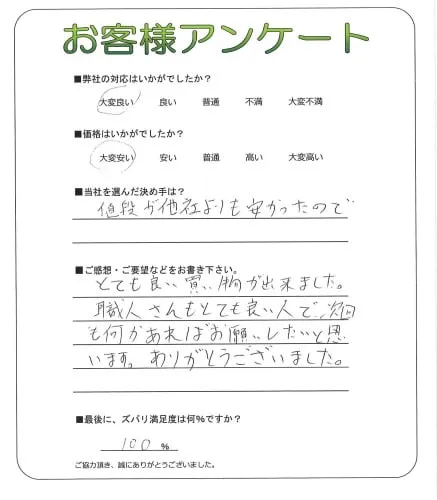 お客様アンケート
■弊社の対応はいかがでしたか?
大変良い 良い 普通 不満 大変不満
■価格はいかがでしたか?
大変安い 安い 普通 高い 大変高い
■当社を選んだ決め手は?
値段が他社よりも安かったので
■ご感想・ご要望などをお書き下さい。
とても良い買い物が出来ました。
職人さんもとても良い人で、次回
も何かあればお願いしたいと思
います。ありがとうございました。
■最後に、ズバリ満足度は何%ですか?
100 %
ご協力頂き、誠にありがとうございました。